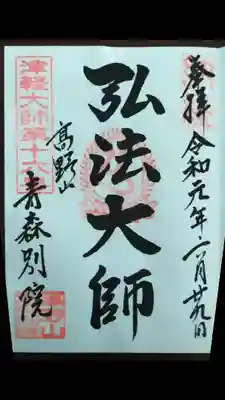 奉拝 令和元年六月廿九日
弘法大師
津軽大師第十六番
高野山
青森別院